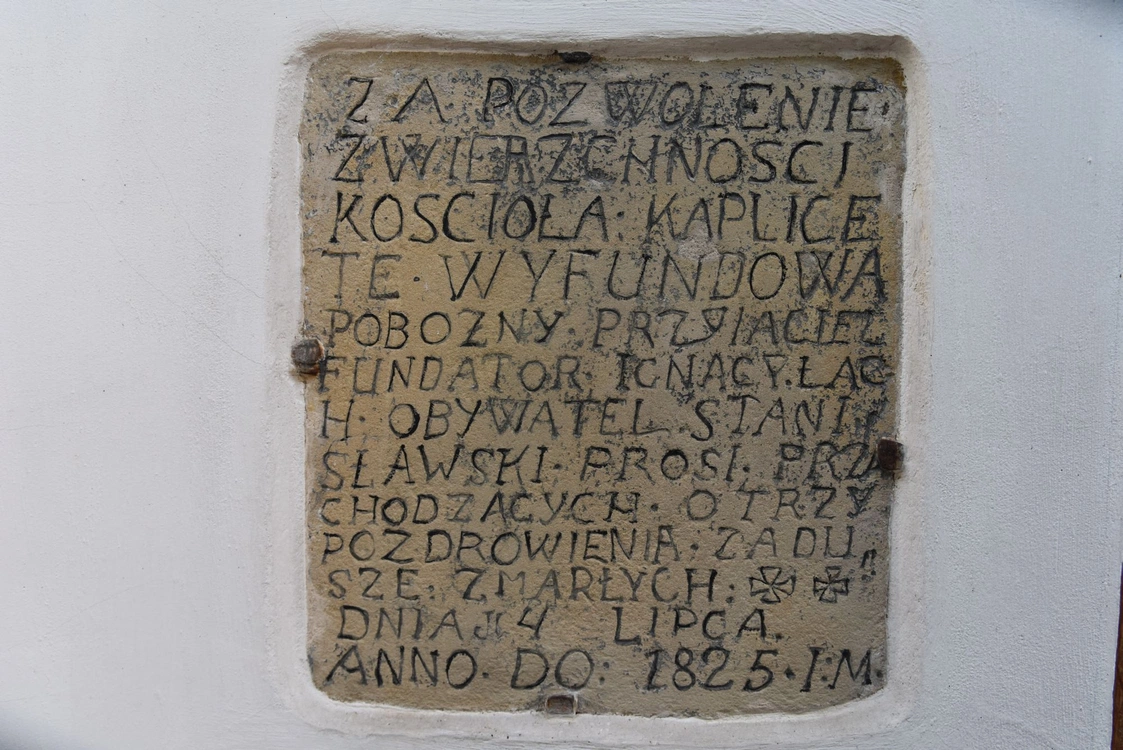 Z·A· POZWOLENIE·
ZWIERZCHNOSCI
KOSCIOŁA· KAPLICE
TE· WYFUNDOWA
POBOZNY· PRZYIACIEL
FUNDATOR· IGNACY·ŁAC
H· OBYWATEL· STANI„
SŁAWSKI· PROSI· PRZ
CHODZĄCYCH· O TRZY
POZDROWIENIA· ZA DU„
SZE· ZMARŁYCH:
DNIA 4 LIPCA.
ANNO· DO: 1825·I:M·